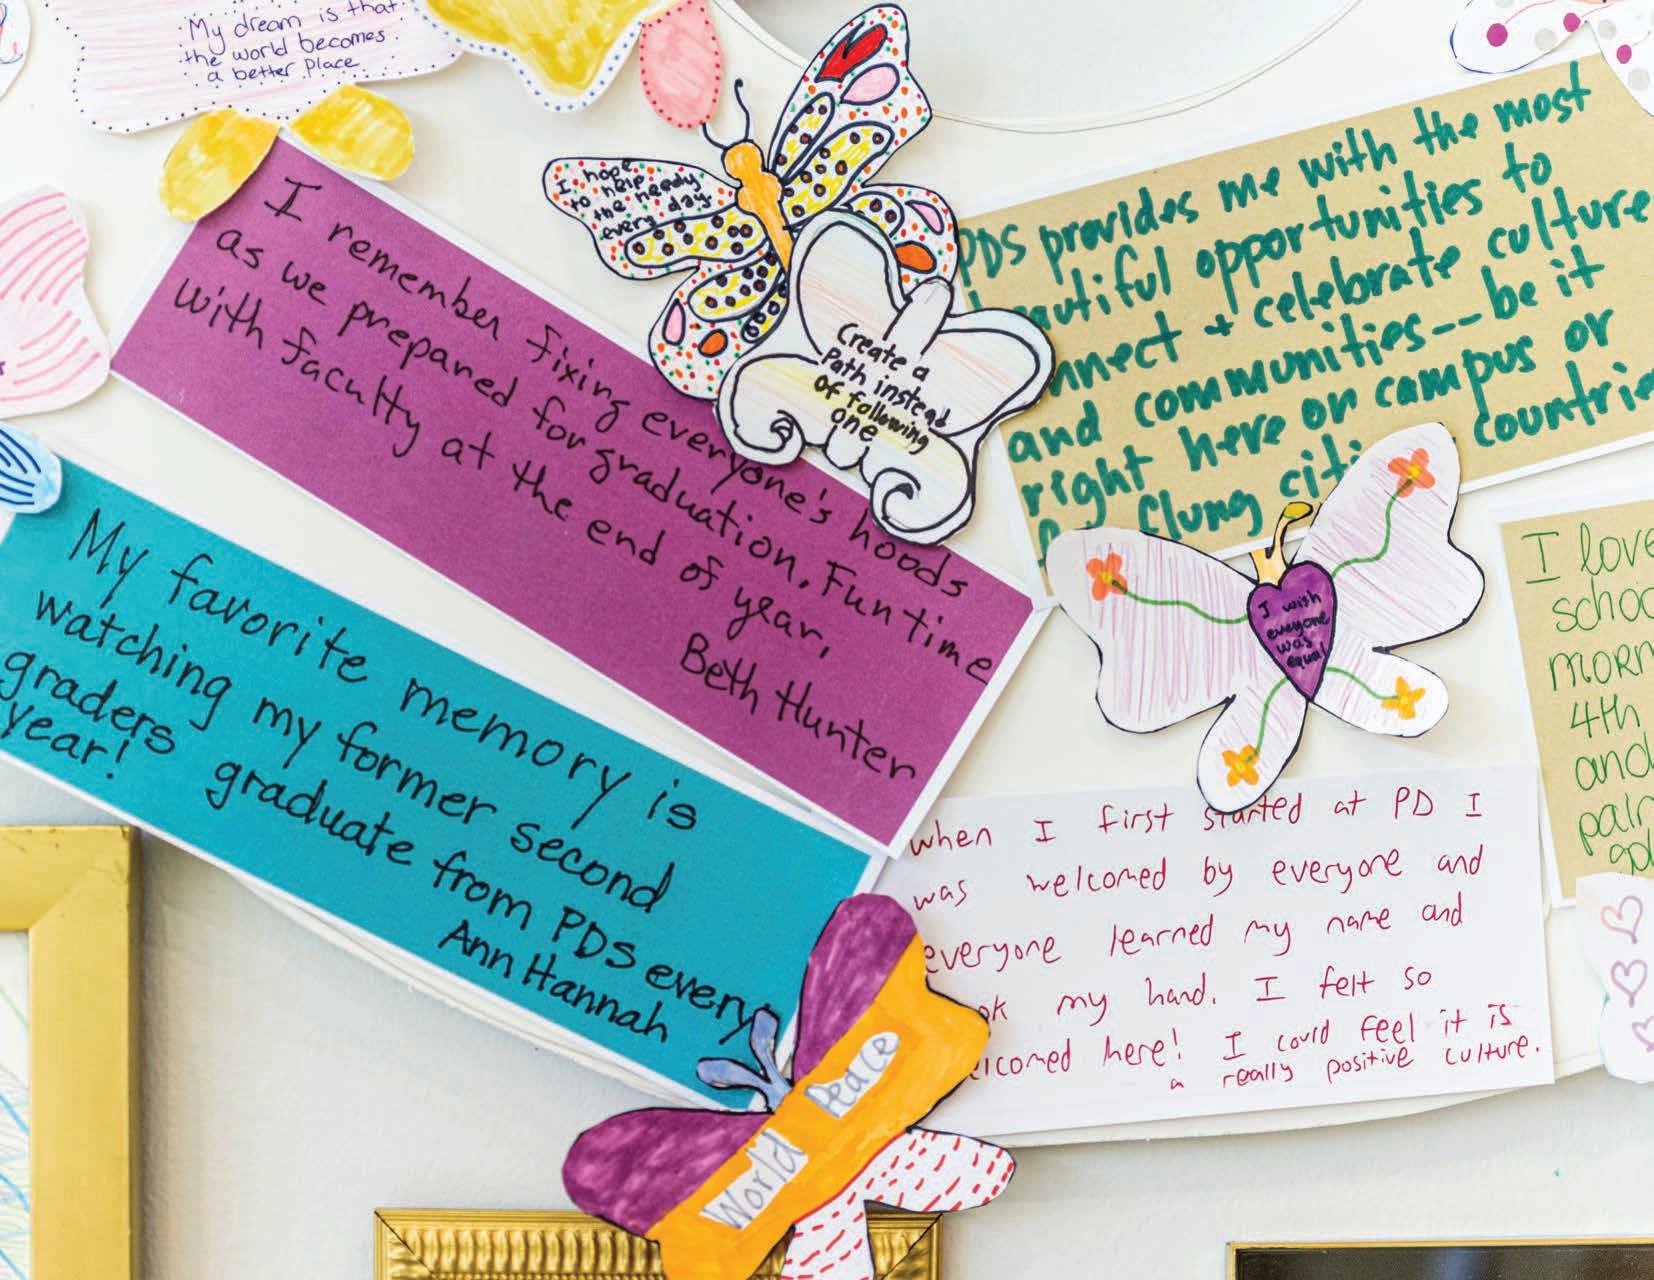 My dream is that
the world becomes
a better place
I hope
to help
the needy
every day.
Create a
Path instead
of following
one
PDS provides me with the most
opportunities to
+ celebrate culture
and communities--be it
right here on campus or
flung
I remember fixing everyone's hoods
as we prepared for graduation. Fun time
with faculty at the end of year,
Beth Hunter
I wish
everyone
was
equal
I love
4th
and
My favorite memory is
watching my former second
graders graduate from PDS every
year!
Ann Hannah
when I first started at PD I
was welcomed by everyone and
everyone learned my name and
my hand. I felt so
here! I could feel it is
a really positive culture.
World Peace